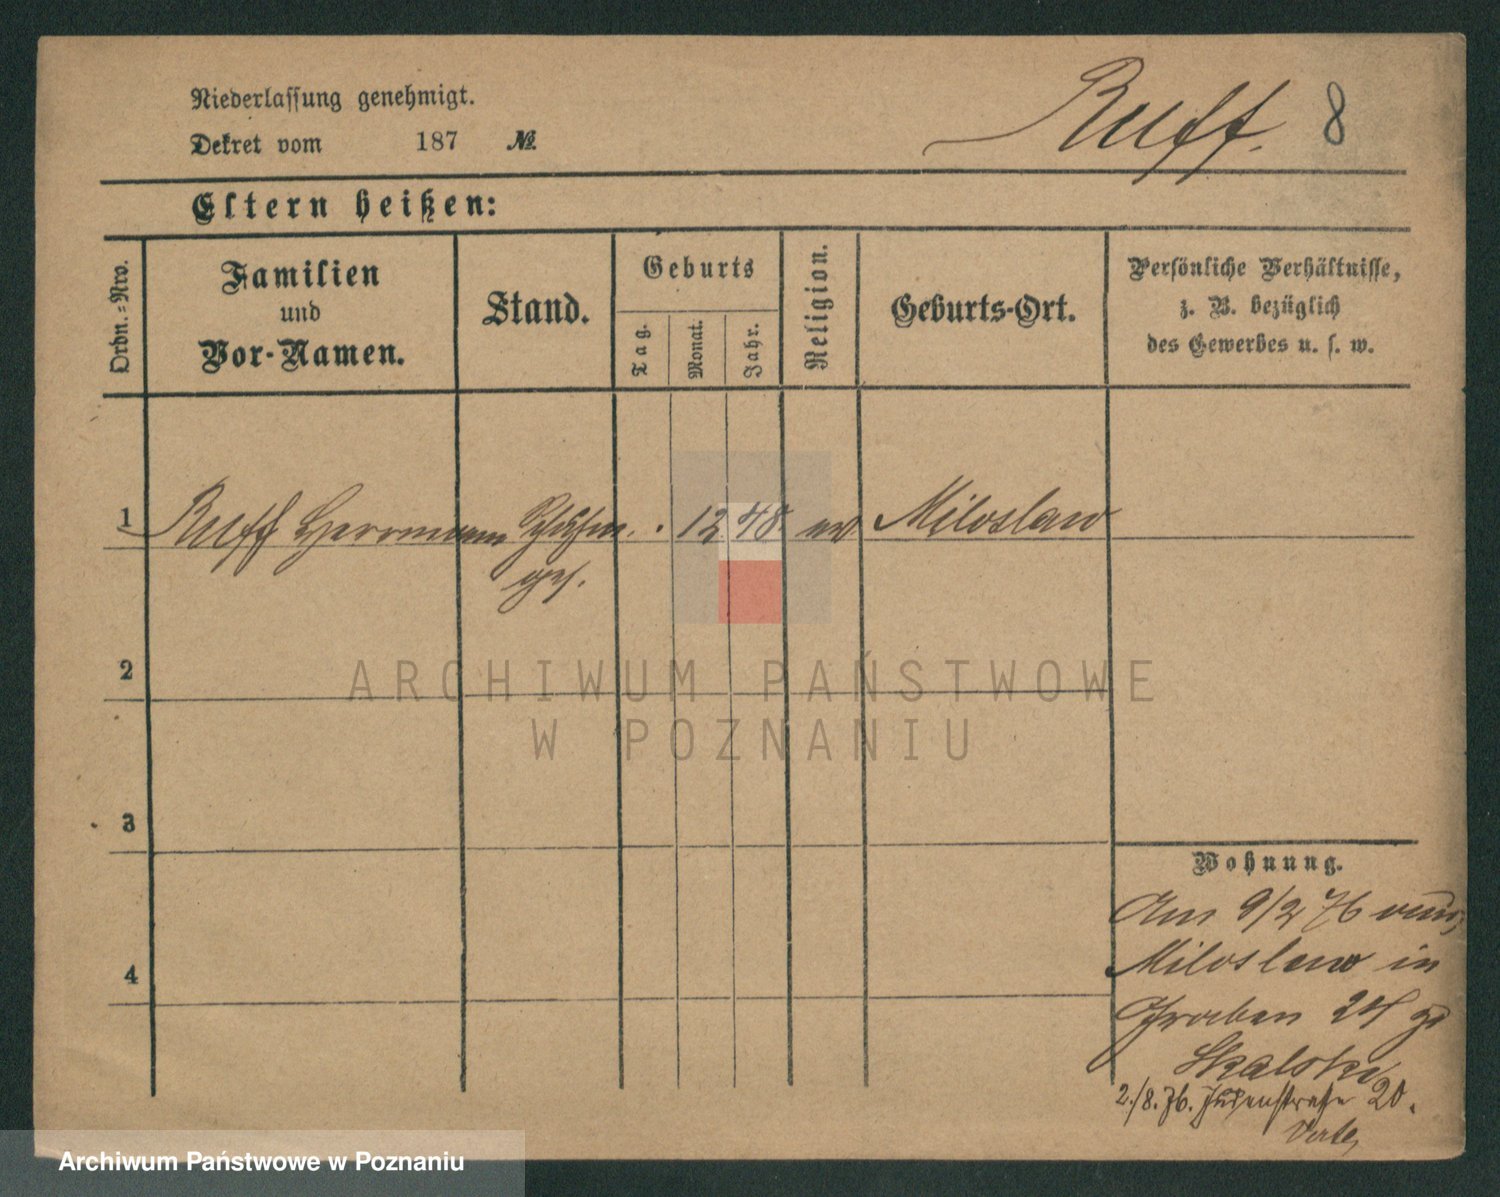 Niederlassung genehmigt.
Dekret vom 187 №
Ruff. 8
Eltern heißen:
Ordn.-Nro.
Familien
und
Vor-Namen.
Stand.
Geburts
Tag.
Monat.
Jahr.
Religion.
Geburts-Ort.
Persönliche Verhältnisse,
z. B. bezüglich
des Gewerbes u. s. w.
1 Ruff Herrmann Schuhm. 12 48. ev Miloslaw
ges.
2
ARCHIWUM PAŃSTWOWE
W POZNANIU
3
Wohnung.
Am 9/2 76 von
Miloslaw in
4
Graben 24
Skalski
2./8.76. Judenstraße 20.
Archiwum Państwowe w Poznaniu